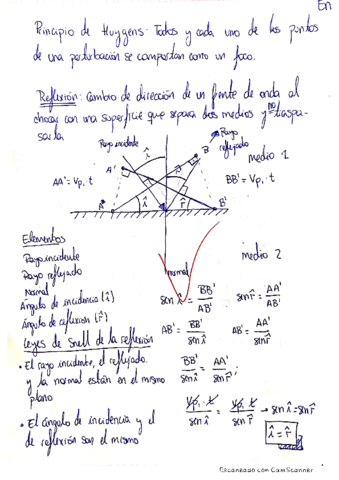 En
Principio de Huygens: Todos y cada uno de los puntos
de una perturbación se comportan como un foco.
Reflexión: Cambio de dirección de un frente de onda al
chocar con una superficie que separa dos medios y no traspa-
sarla
Rayo incidente
Rayo reflejado
medio 1
AA' = Vp₁·t
BB' = Vp₁·t
A'
B
A
B'
î
r̂
Elementos
Rayo incidente
Rayo reflejado
Normal
Ángulo de incidencia (î)
Ángulo de reflexión (r̂)
normal
medio 2
sen î = BB'/AB'   sen r̂ = AA'/AB'
AB' = BB'/sen î   AB' = AA'/sen r̂
Leyes de Snell de la reflexión
• El rayo incidente, el reflejado
y la normal están en el mismo
plano
BB'/sen î = AA'/sen r̂
• El ángulo de incidencia y el
de reflexión son el mismo
Vp₁·t/sen î = Vp₁·t/sen r̂ → sen î = sen r̂
î = r̂
Escaneado con CamScanner